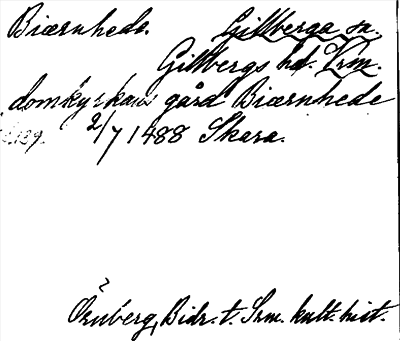 Biærnhede. Gillberga sn.
Gillbergs hd. Vrm.
domkyrkans gård Biærnhede
2/7 1488 Skara.
Bidr. t. Srm. kult. hist.